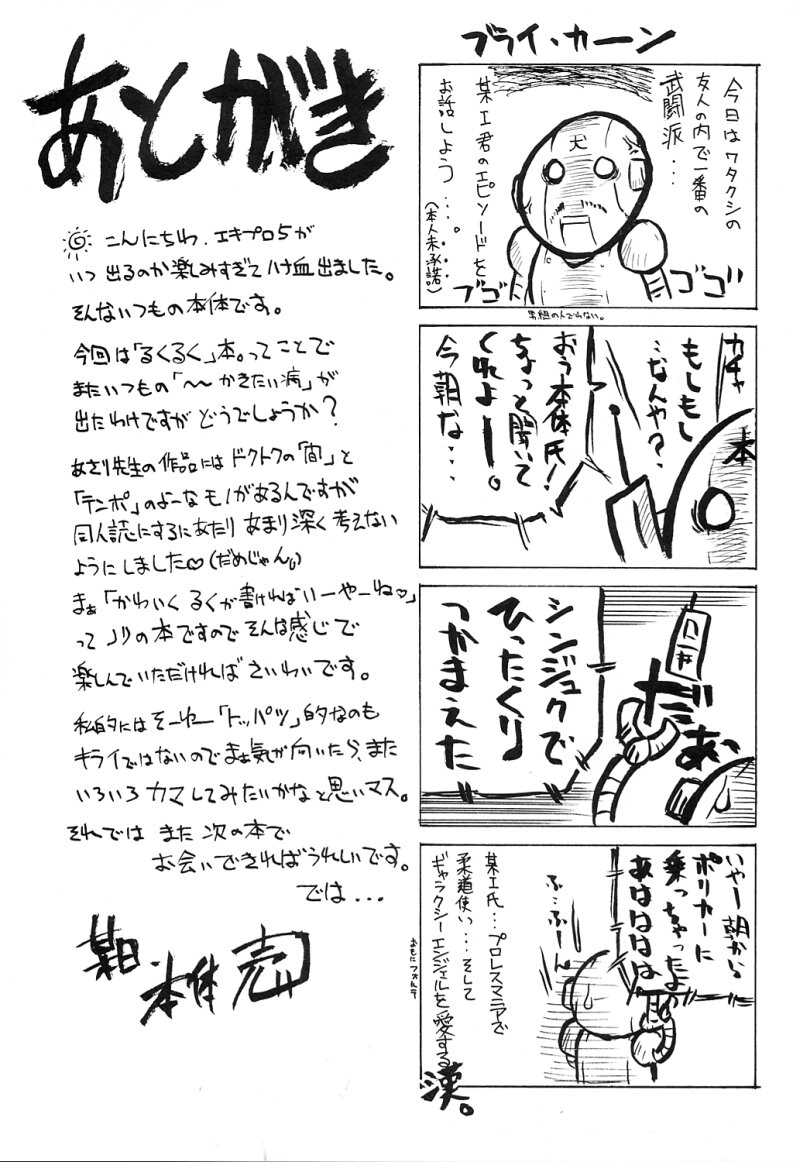 あとがき
こんにちわ、エキプロ5が
いつ出るのか楽しみすぎてハナ血出ました。
そんないつもの本体です。
今回は「るくるく」本。ってことで
またいつもの「〜〜かきたい病」が
出たわけですがどうでしょうか？
あさり先生の作品にはドクトクの「間」と
「テンポ」のよーなモノがあるんですが
同人読にするにあたりあまり深く考えない
ようにしました♡(だめじゃん。)
まぁ「かわいくるくが書ければいーやーね♡」
ってノリの本ですのでそんな感じで
楽しんでいただければさいわいです。
私的にはそーゆー「トッパツ」的なのも
キライではないのでまぁ気が向いたら、また
いろいろカマしてみたいかなと思いマス。
それではまた次の本で
お会いできればうれしいです。
では...
本体 売
ブライ・カーン
今日はワタクシの
友人の内で一番の
武闘派...
某エ君のエピソードを
お話しよう...。
(本人未承諾)
犬
ゴゴ
ゴゴ
男組の人でわない。
ガチャ
もしもし
…なんや？
本
おう本体氏！
ちょっと聞いて
くれよー。
今朝な...
シンジュクで
ひったくり
つかまえた
だぁ
いやー朝から
ポリカーに
乗っちゃったよ
あはははは
ふ…ふーん
某エ氏…プロレスマニアで
柔道使い…そして
ギャラクシーエンジェルを愛する
漢。
おもにフォルテ